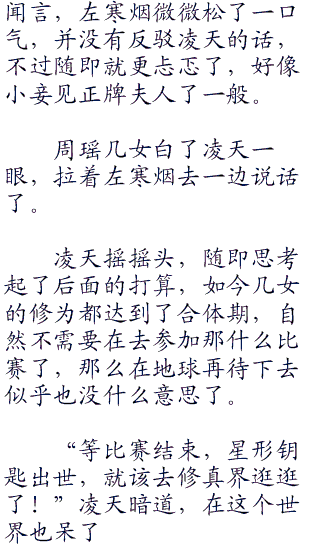 闻言，左寒烟微微松了一口
气，并没有反驳凌天的话，
不过随即就更忐忑了，好像
小妾见正牌夫人了一般。
周瑶几女白了凌天一
眼，拉着左寒烟去一边说话
了。
凌天摇摇头，随即思考
起了后面的打算，如今几女
的修为都达到了合体期，自
然不需要在去参加那什么比
赛了，那么在地球再待下去
似乎也没什么意思了。
“等比赛结束，星形钥
匙出世，就该去修真界逛逛
了！”凌天暗道，在这个世
界也呆了